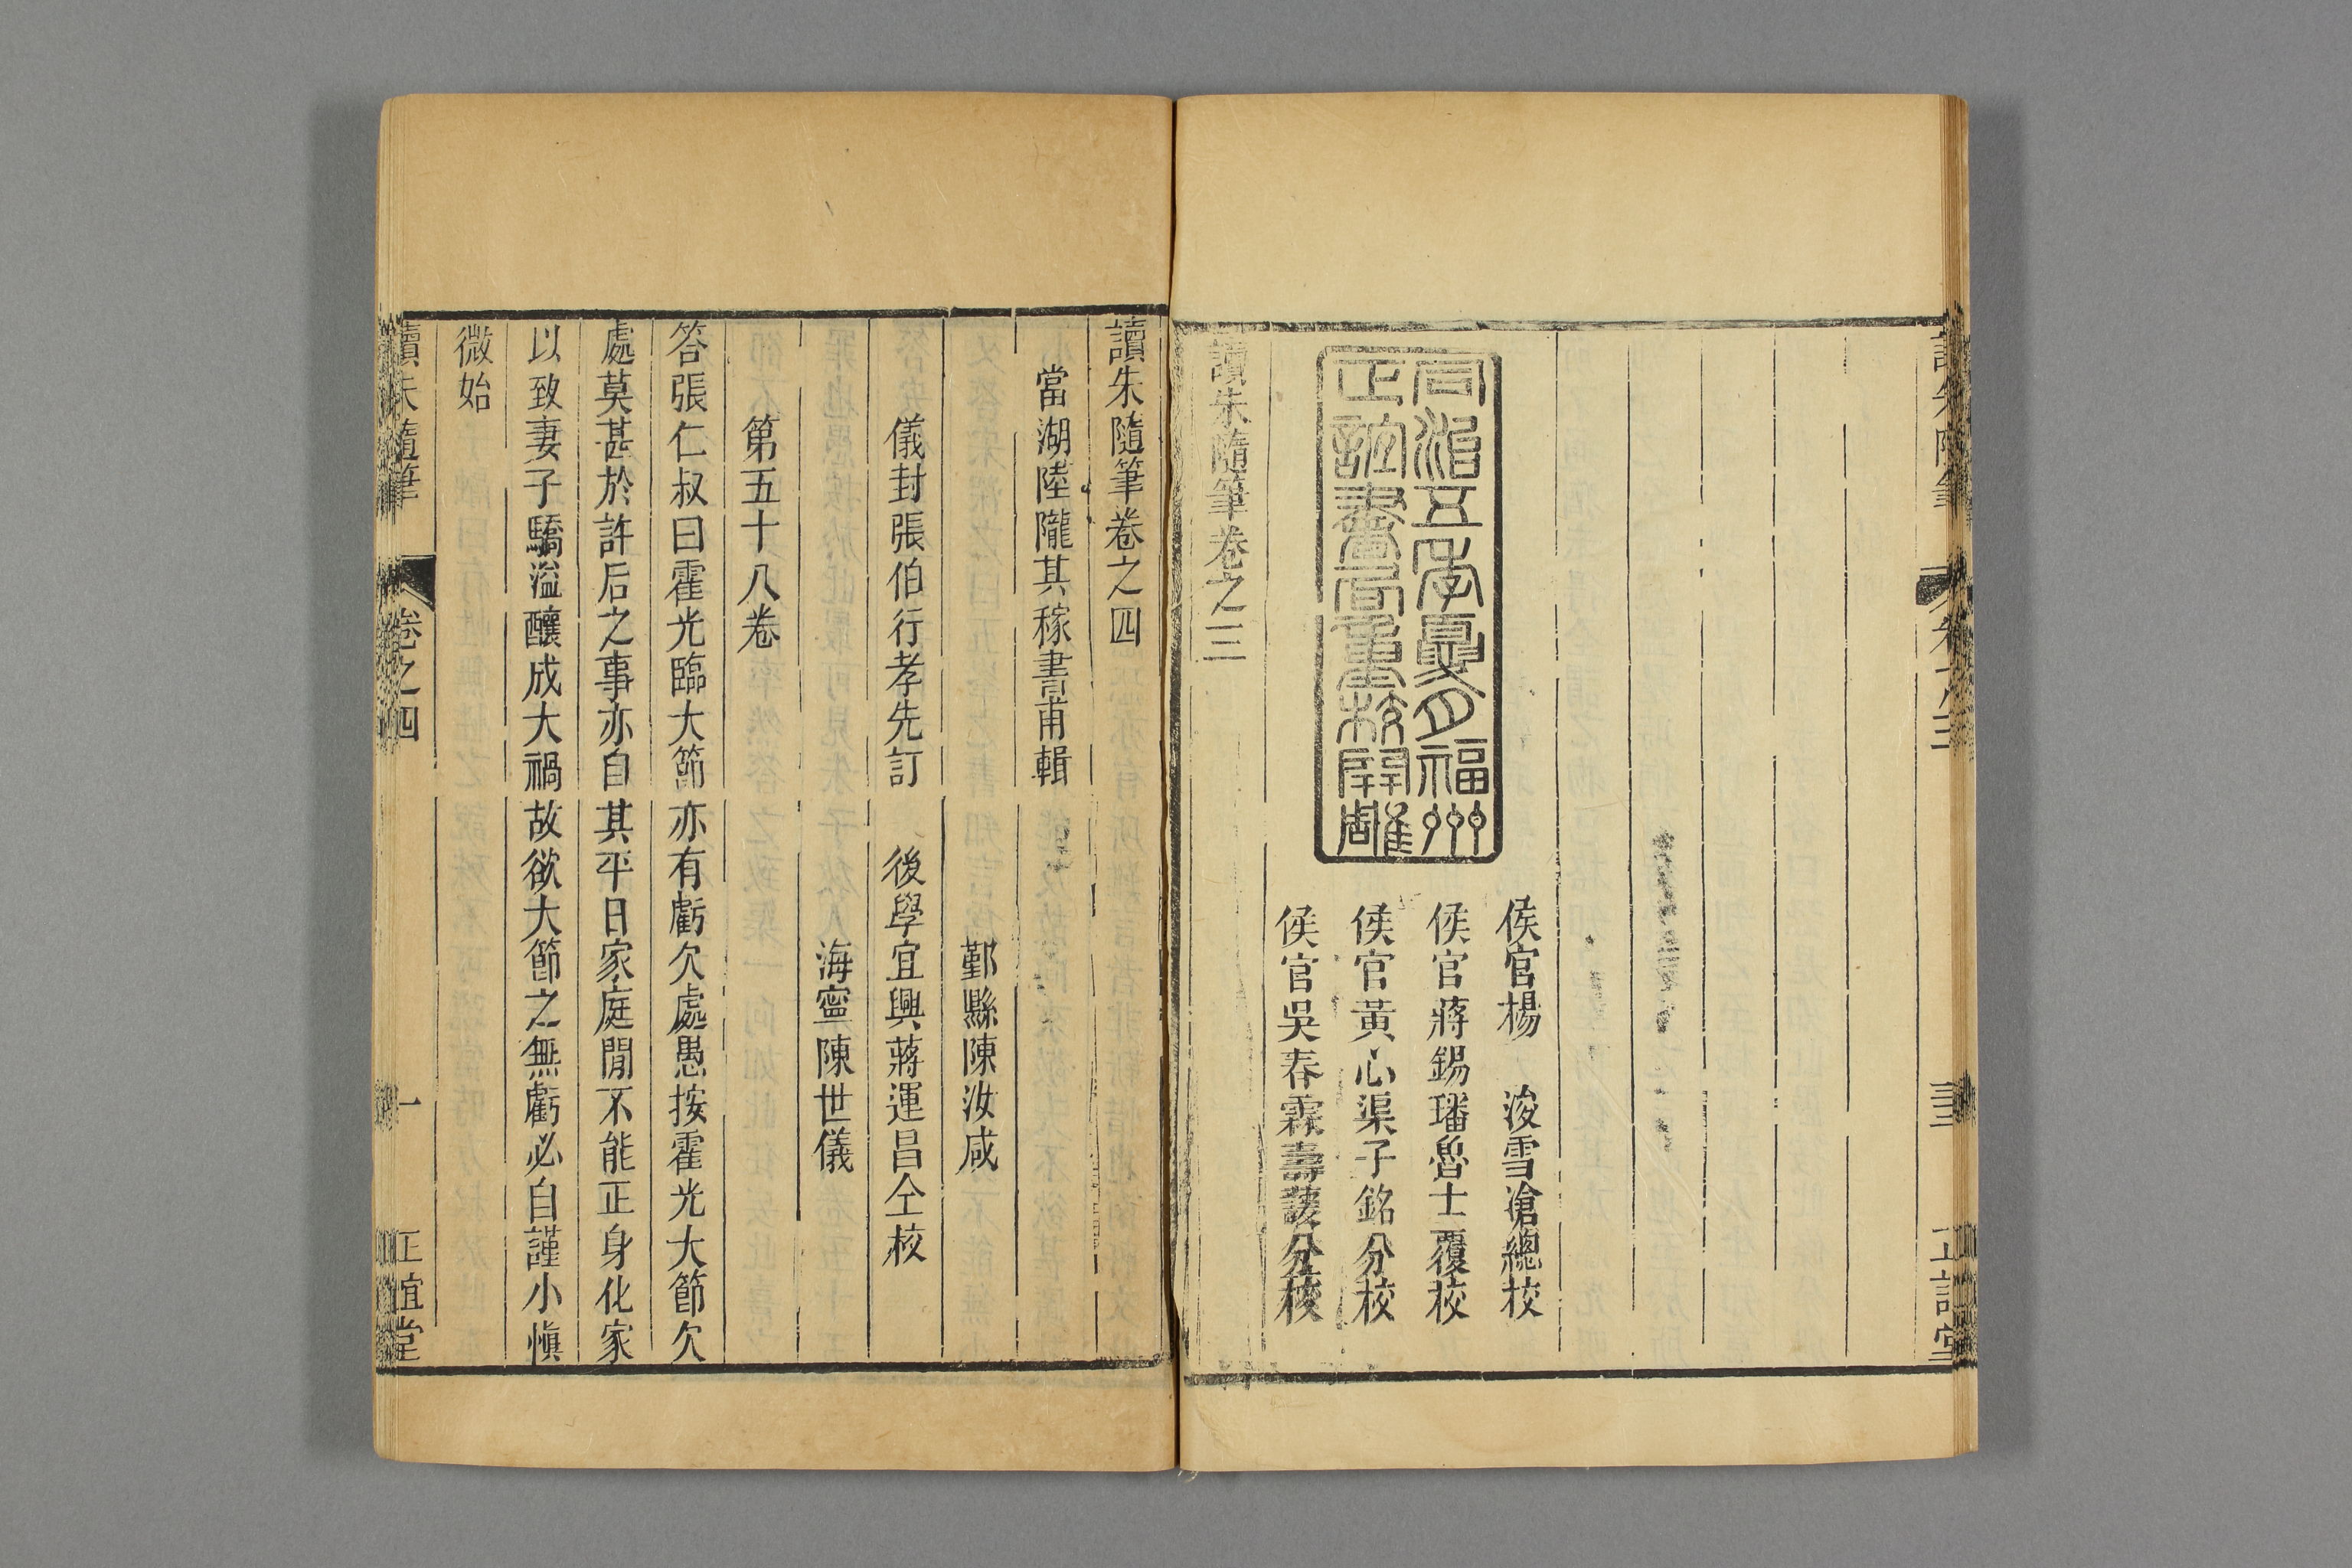 讀朱隨筆
卷之三
三
正誼堂
侯官楊　浚雪滄總校
侯官蔣錫璠魯士覆校
侯官黃心渠子銘分校
侯官吳春霖壽護分校
同治五年夏月福州
正誼書局重校開雕
讀朱隨筆卷之三
讀朱隨筆卷之四
當湖陸隴其稼書甫輯
鄞縣陳汝咸
儀封張伯行孝先訂　後學宜興蔣運昌仝校
海寧陳世儀
第五十八卷
答張仁叔曰霍光臨大節亦有虧欠處愚按霍光大節欠
處莫甚於許后之事亦自其平日家庭閒不能正身化家
以致妻子驕溢釀成大禍故欲大節之無虧必自謹小慎
微始
讀朱隨筆
卷之四
一
正誼堂